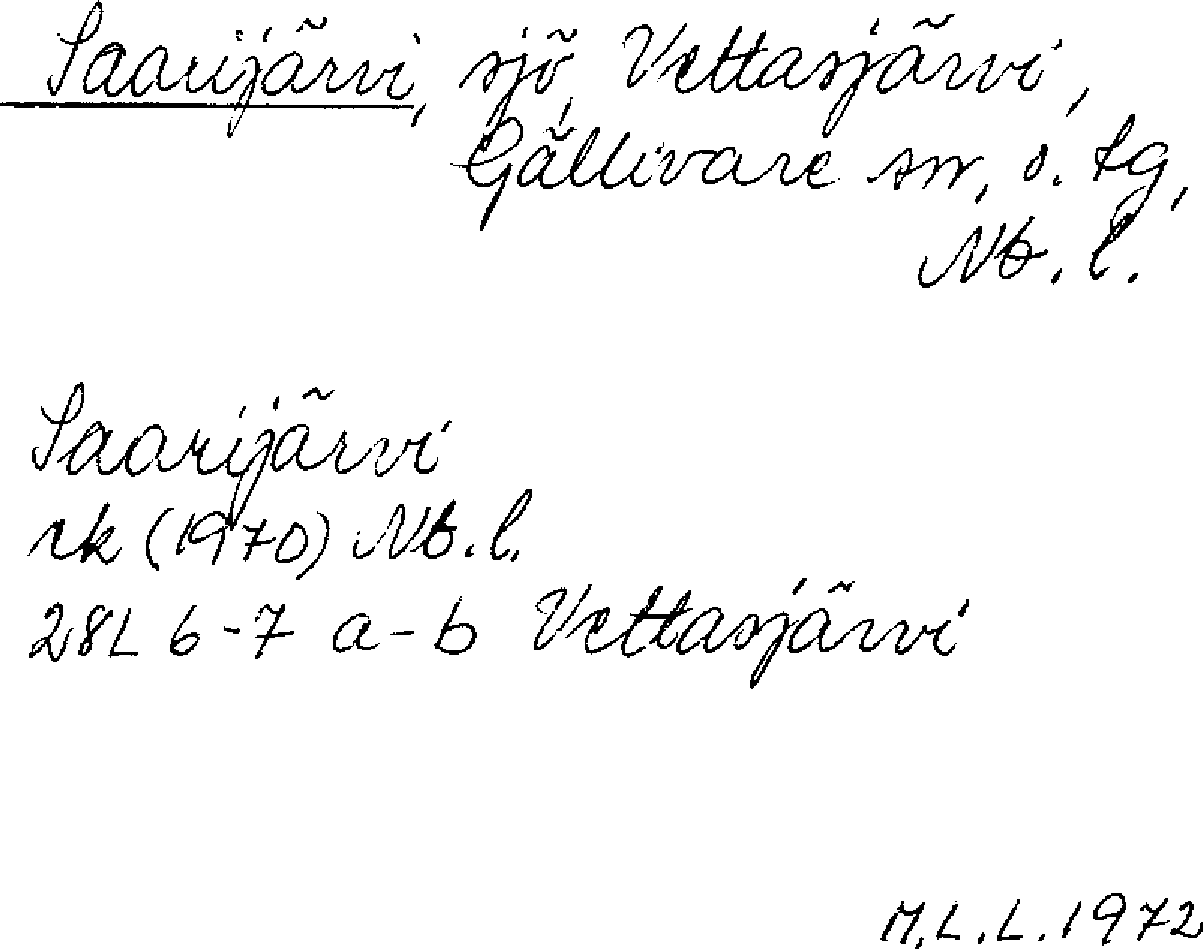 Saarijärvi, sjö, Vettasjärvi,
Gällivare sn, o. tg,
Nb. l.
Saarijärvi
rk (1970) Nb. l.
28L 6-7 a-b Vettasjärvi
M.L.L. 1972